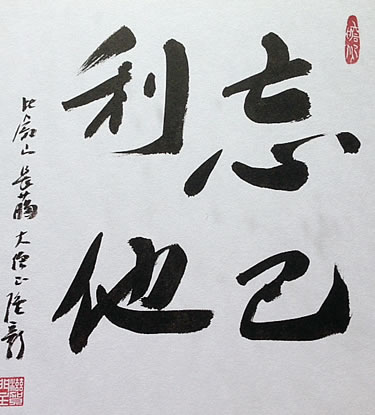 忘己
利他
比叡山 長臈 大僧正 隆彰